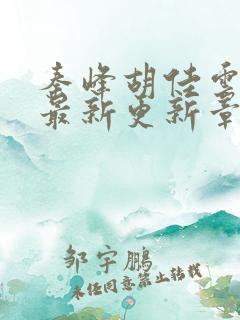 秦峰胡佳雲
最新更新章
邹宇鹏
未经同意禁止转载